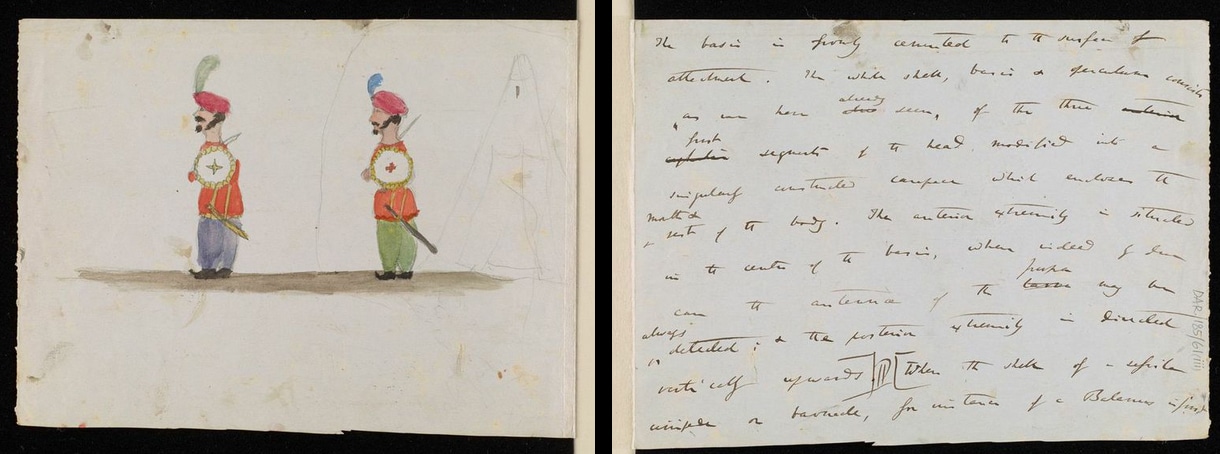 The basis is firmly cemented to the surface of
attachment. The whole shell, basis & operculum consists
already
as we have seen, of the three anterior
first
segments of the head modified into a
singularly constructed carapace which encloses the
mouth &
rest of the body. The anterior extremity is situated
in the centre of the basis, where indeed
pupa
can the antennæ of the larva may be
always
detected; & the posterior extremity is directed
vertically upwards. When the shell of a sessile
cirripede or barnacle, for instance of a Balanus
DAR/185/61iiii